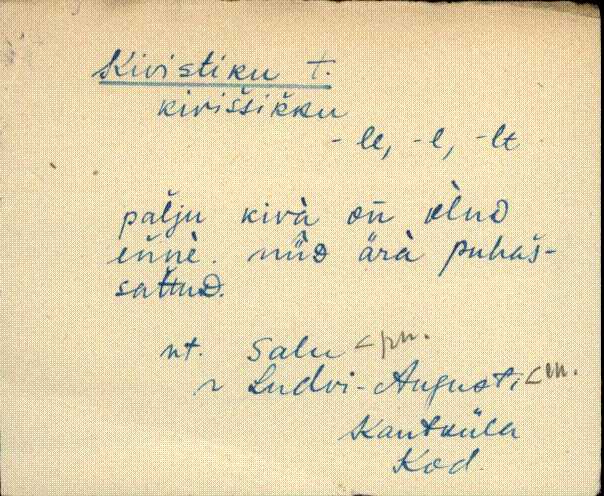 Kivistiku t.
kiviššikku
- le, - l, - lt
pal̆ju kivà on̄ òlnD
en̆nè. nǜiD ärà puhaš-
sattuD.
nt. Salu <pn.
n Ludvi-Augusti <in.
Kantküla
Kod.